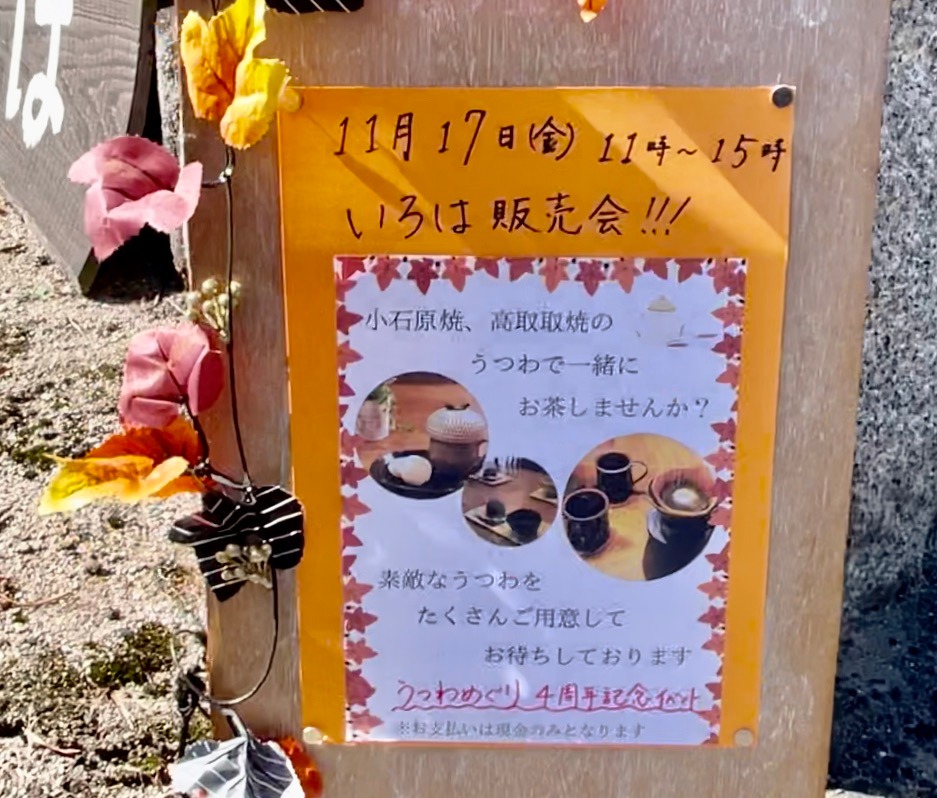 は
11月17日(金) 11時～15時
いろは 販売会!!!
小石原焼、高取取焼の
うつわで一緒に
お茶しませんか？
素敵なうつわを
たくさんご用意して
お待ちしております
うつわめぐり 4周年記念イベント
※お支払いは現金のみとなります